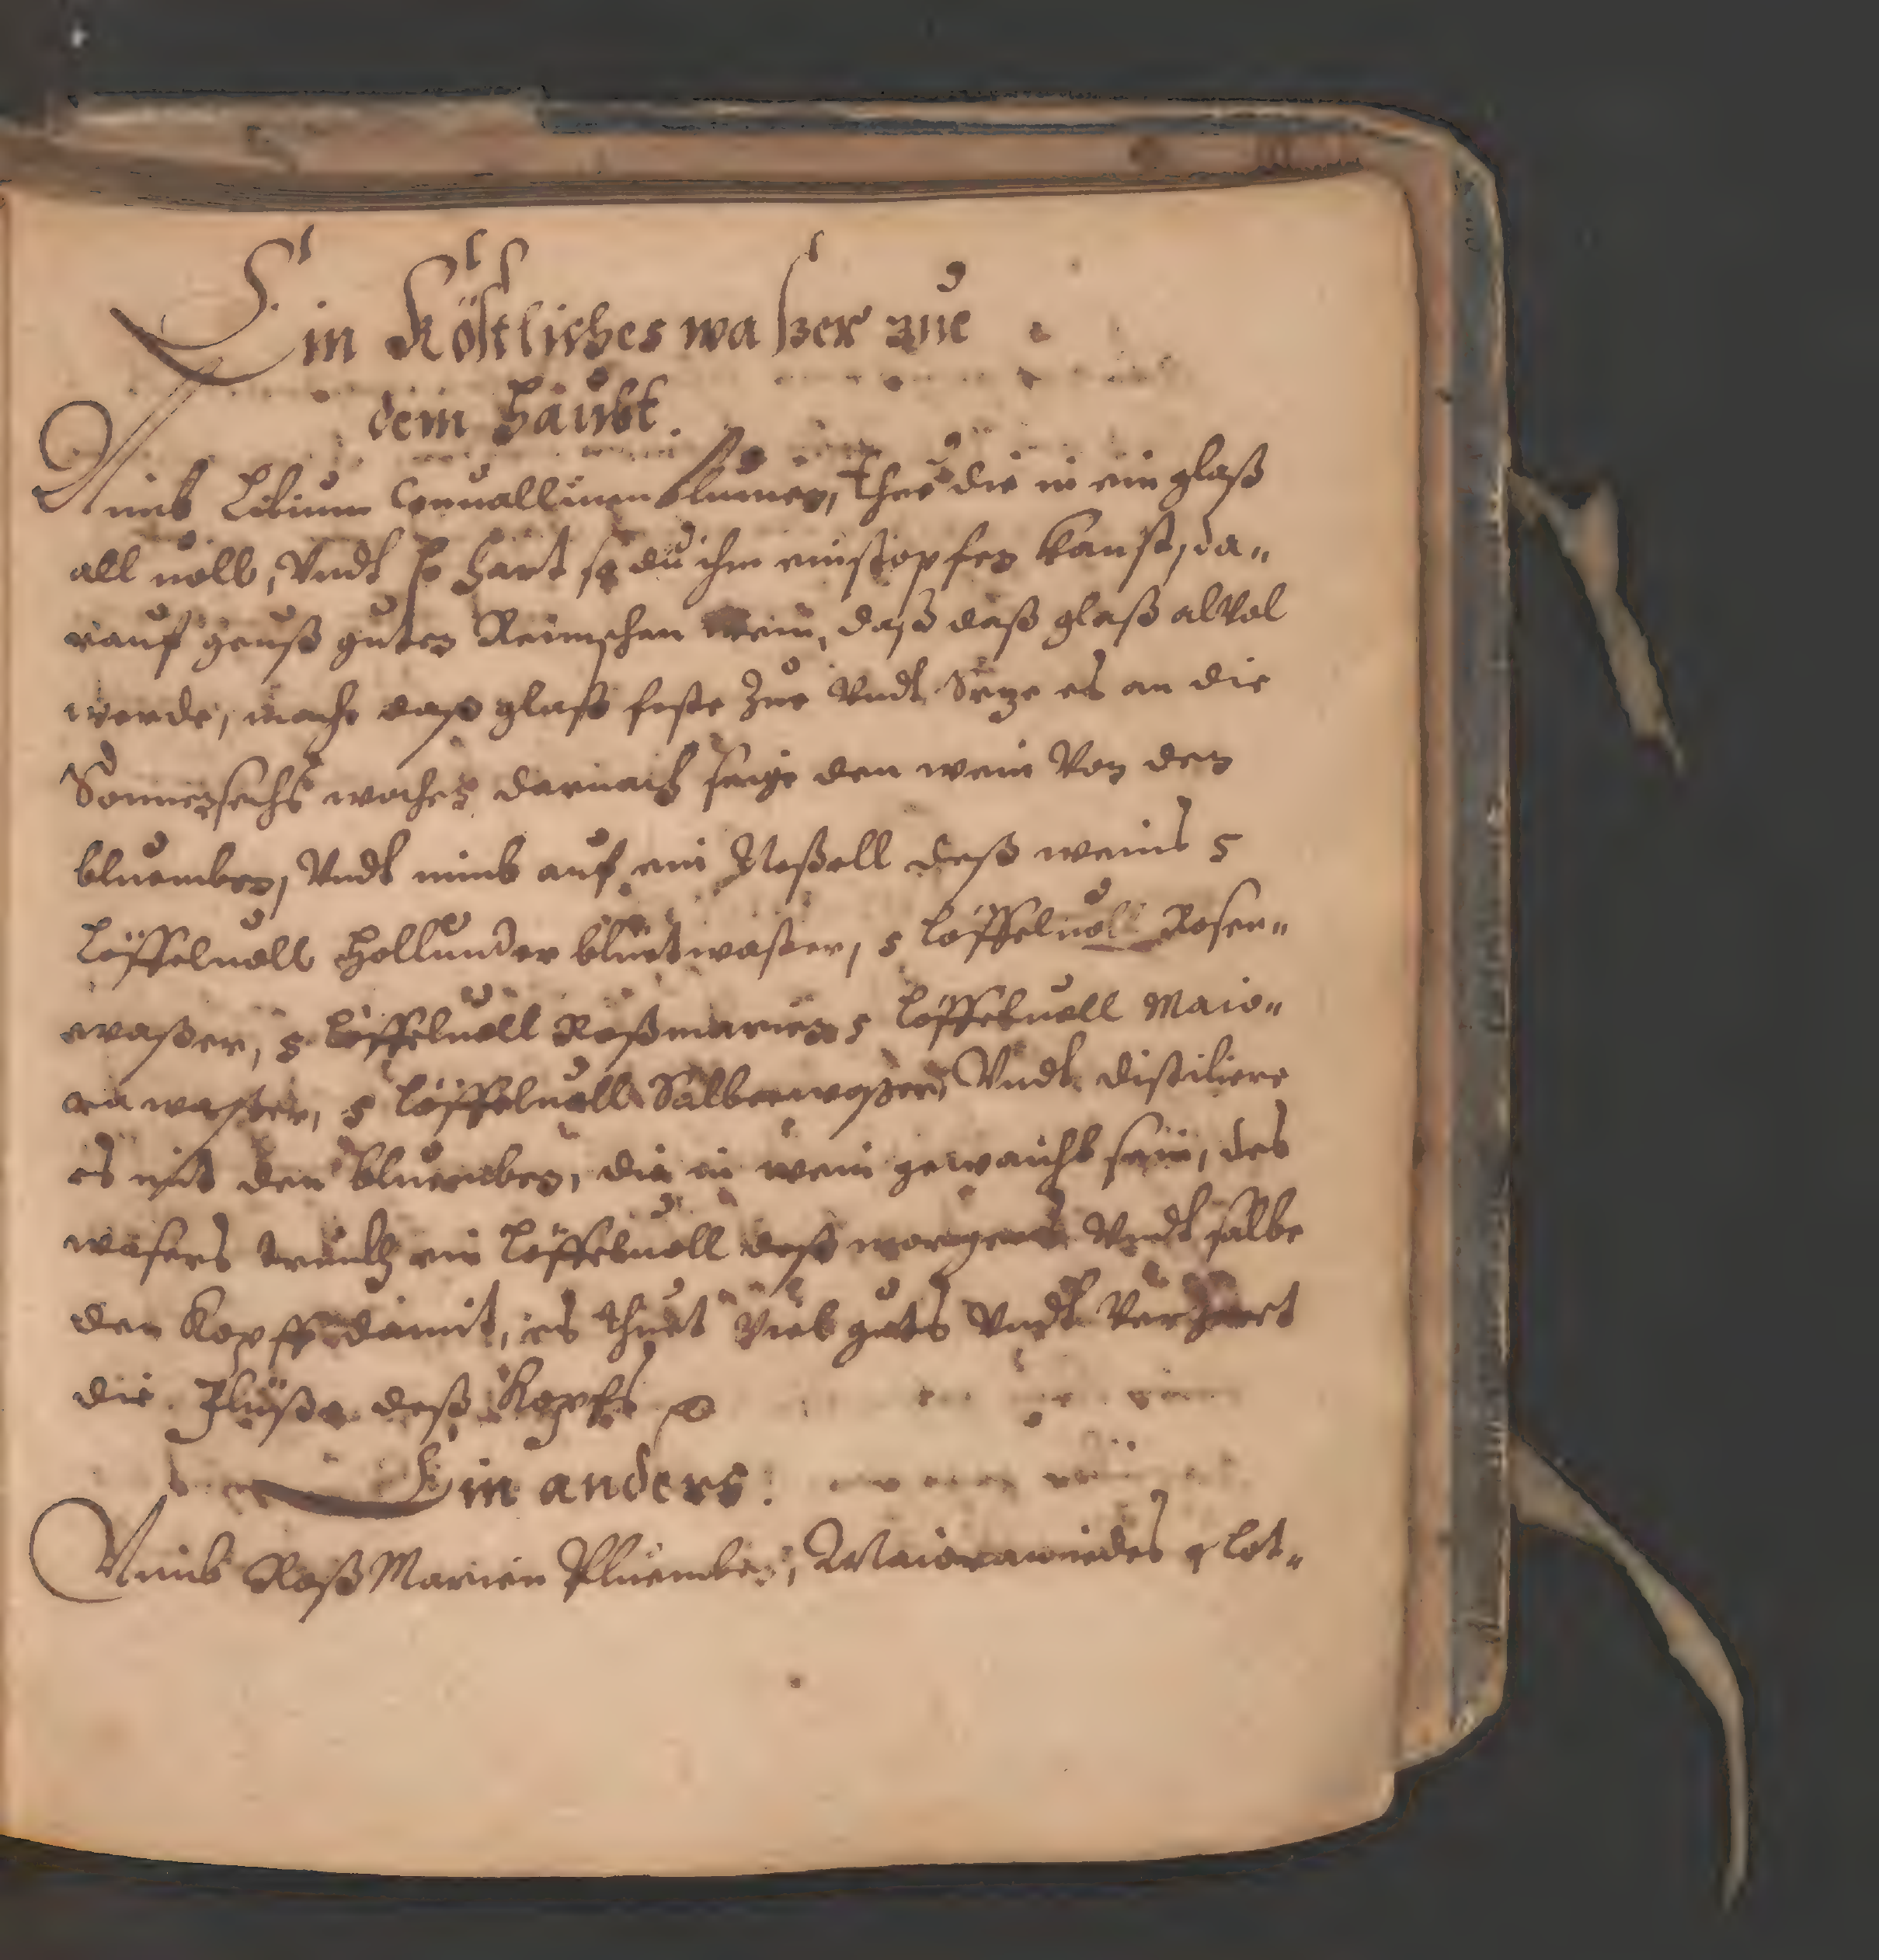 Ein Köstliches waßer zue
dem Haubt.
Nimb Lilium Conuallium blumen, thue die in ein glaß
all uoll, Vndt so hart so du ihm einstopfen kanst, da„
rauf geuß guten Reinischen wein, daß daß glaß alvol
werde, mache daß glaß feste zue Vndt Seze es an die
Sonnen sechs wochen darnach seige den wein Von den
bluemben, Vndt nimb auf ein Noßell deß weins 5
Löffeluoll Hollunder bluetwaßer, 5 Löffeluoll Rosen„
waßer, 5 Löffeluoll Roßmarien 5 Löffeluoll Maio„
ra waßer, 5 Löffeluoll Salbeewaßer, Vndt distiliere
es mit den bluemben, die in wein geweicht sein, des
waßers trinckh ein Löffeluoll deß morgens Vndt salbe
den Kopff damit, es thuet Viel guts Vndt Verzert
die Flüße deß Kopfs
Ein anders.
Nimb Roß Marien Bluemben, Maioran iedes 9 lot„